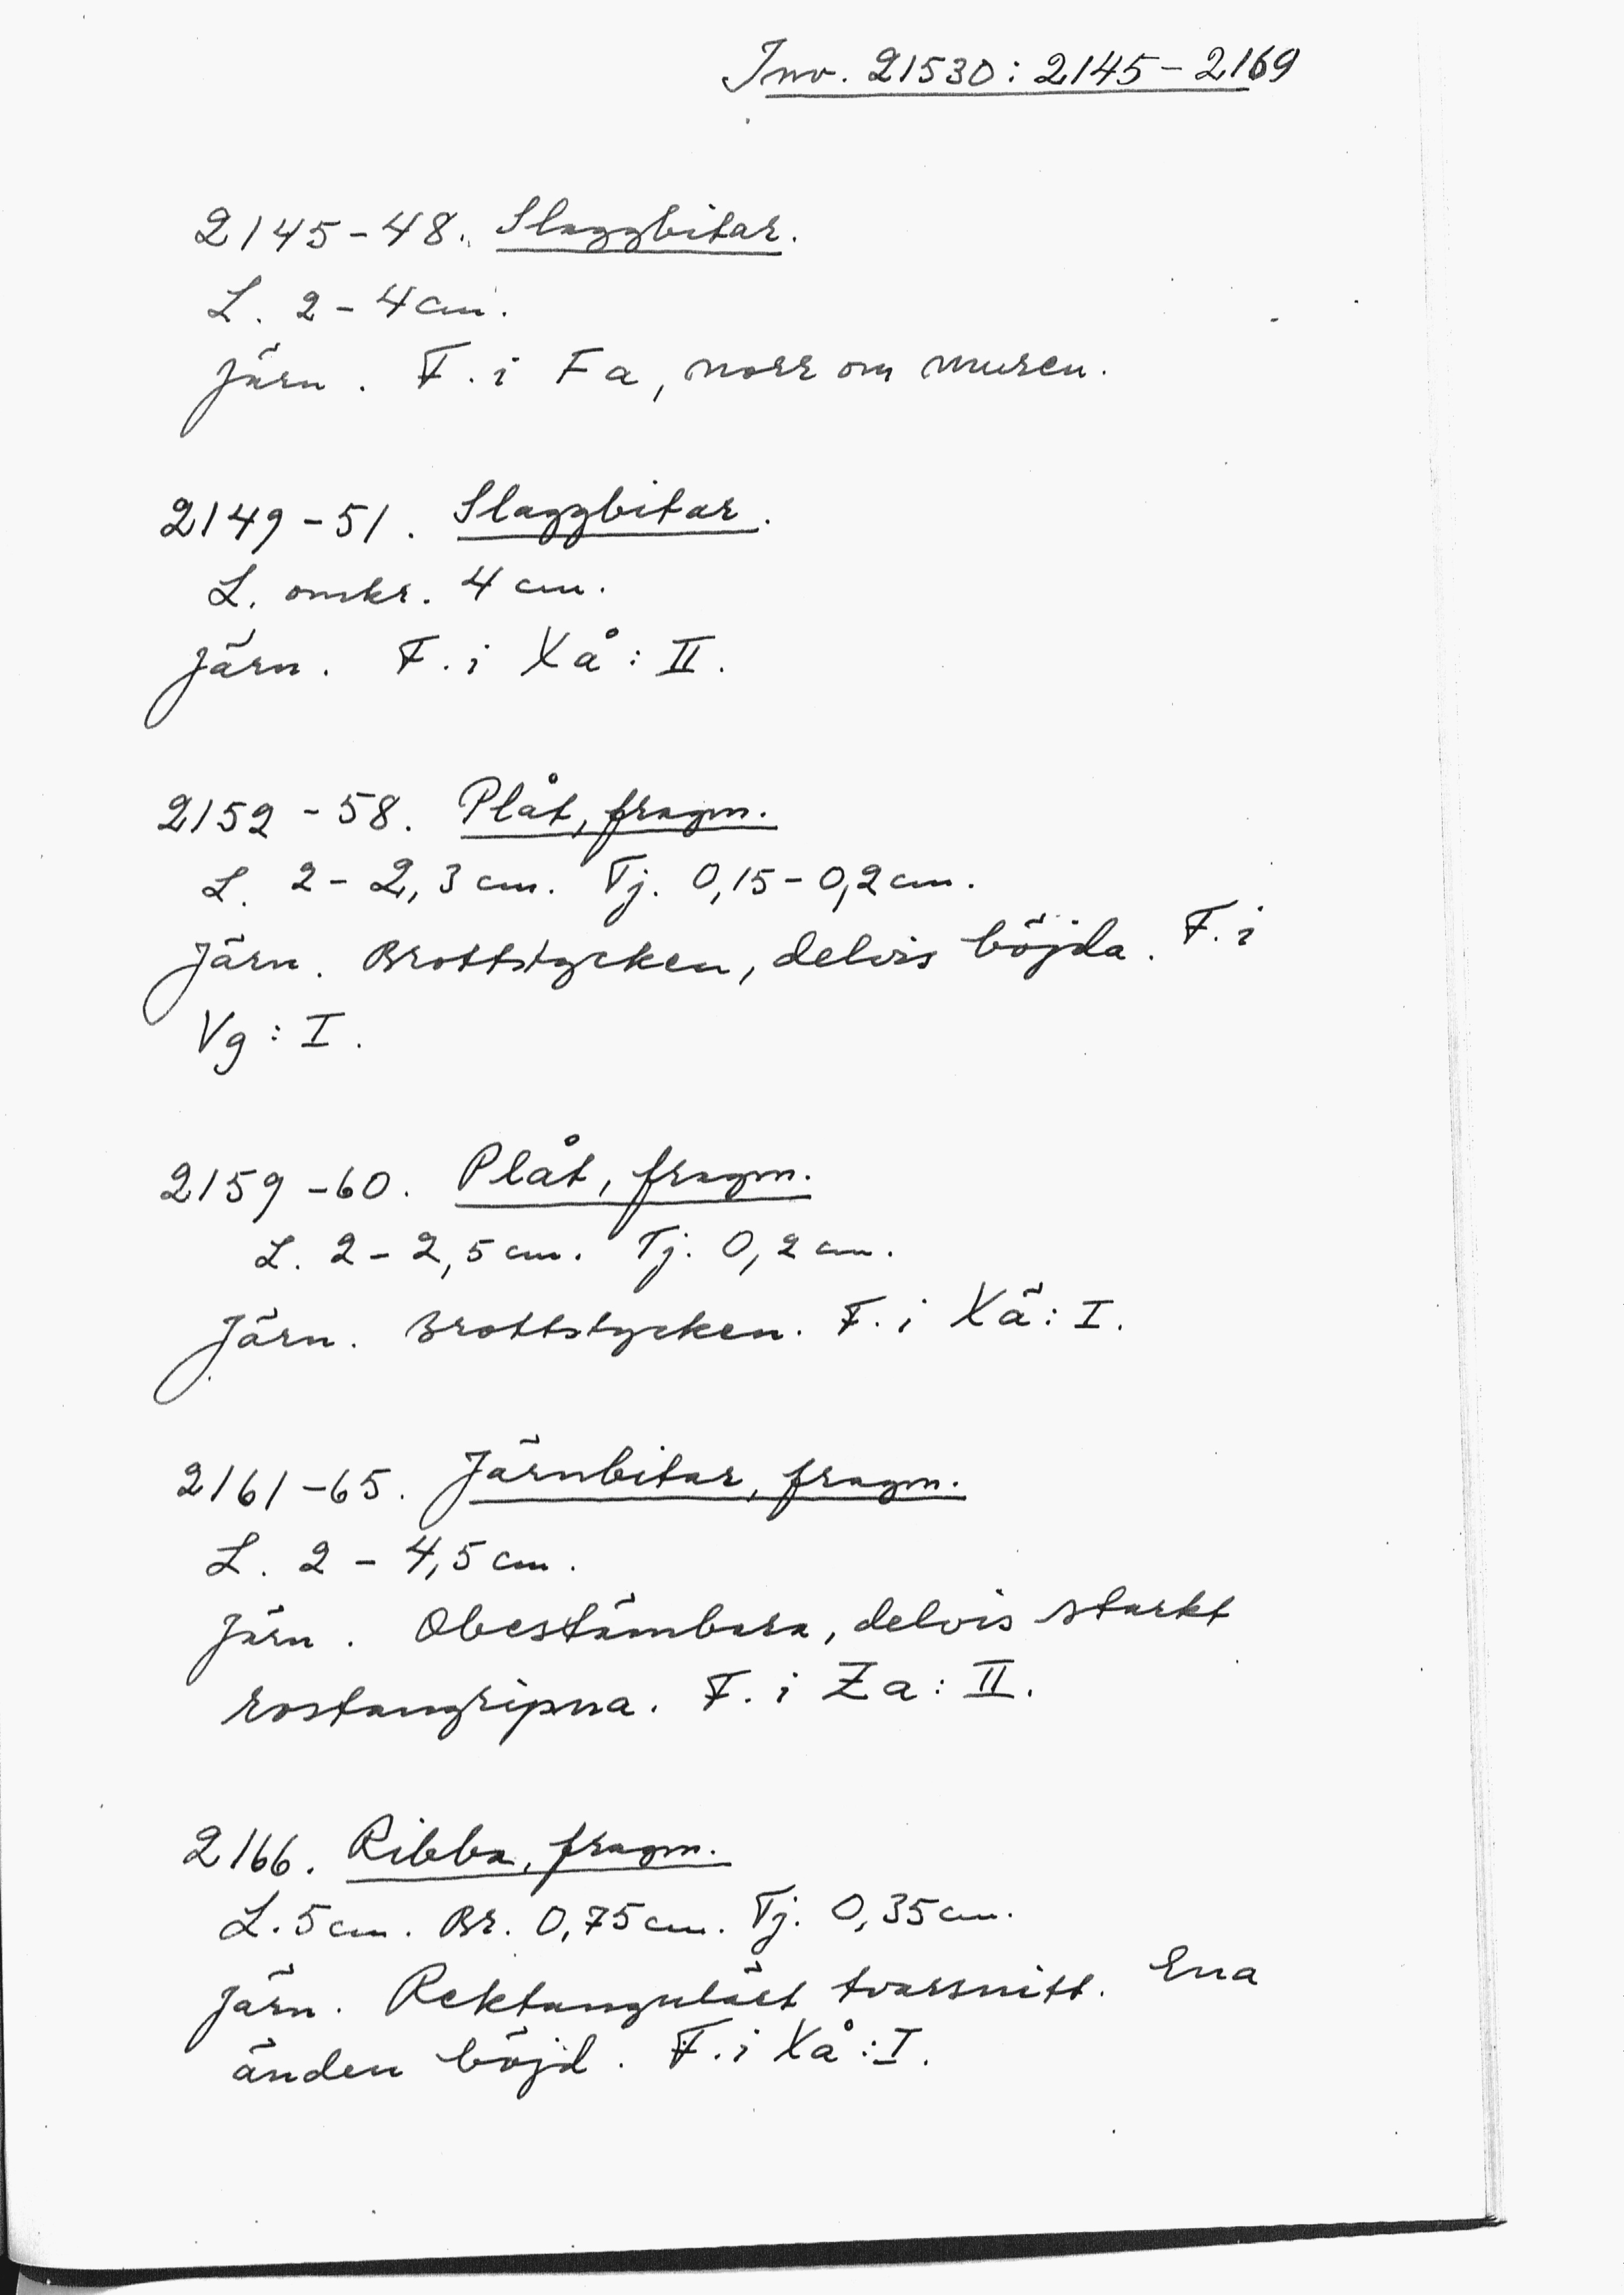 Inv. 21530: 2145-2169
2145-48. Slaggbitar.
L. 2-4 cm.
Järn. F. i Fa, norr om muren.
2149-51. Slaggbitar.
L. omkr. 4 cm.
Järn. F. i Xå: II.
2152-58. Plåt, fragm.
L. 2-2,3 cm. Tj. 0,15-0,2 cm.
Järn. Brottstycken, delvis böjda. F. i
Vg: I.
2159-60. Plåt, fragm.
L. 2-2,5 cm. Tj. 0,2 cm.
Järn. Brottstycken. F. i Xä: I.
2161-65. Järnbitar, fragm.
L. 2-4,5 cm.
Järn. Obestämbara, delvis starkt
rostangripna. F. i Za: II.
2166. Ribba, fragm.
L. 5 cm. Br. 0,75 cm. Tj. 0,35 cm.
Järn. Rektangulärt tvärsnitt. Ena
änden böjd. F. i Xå: I.